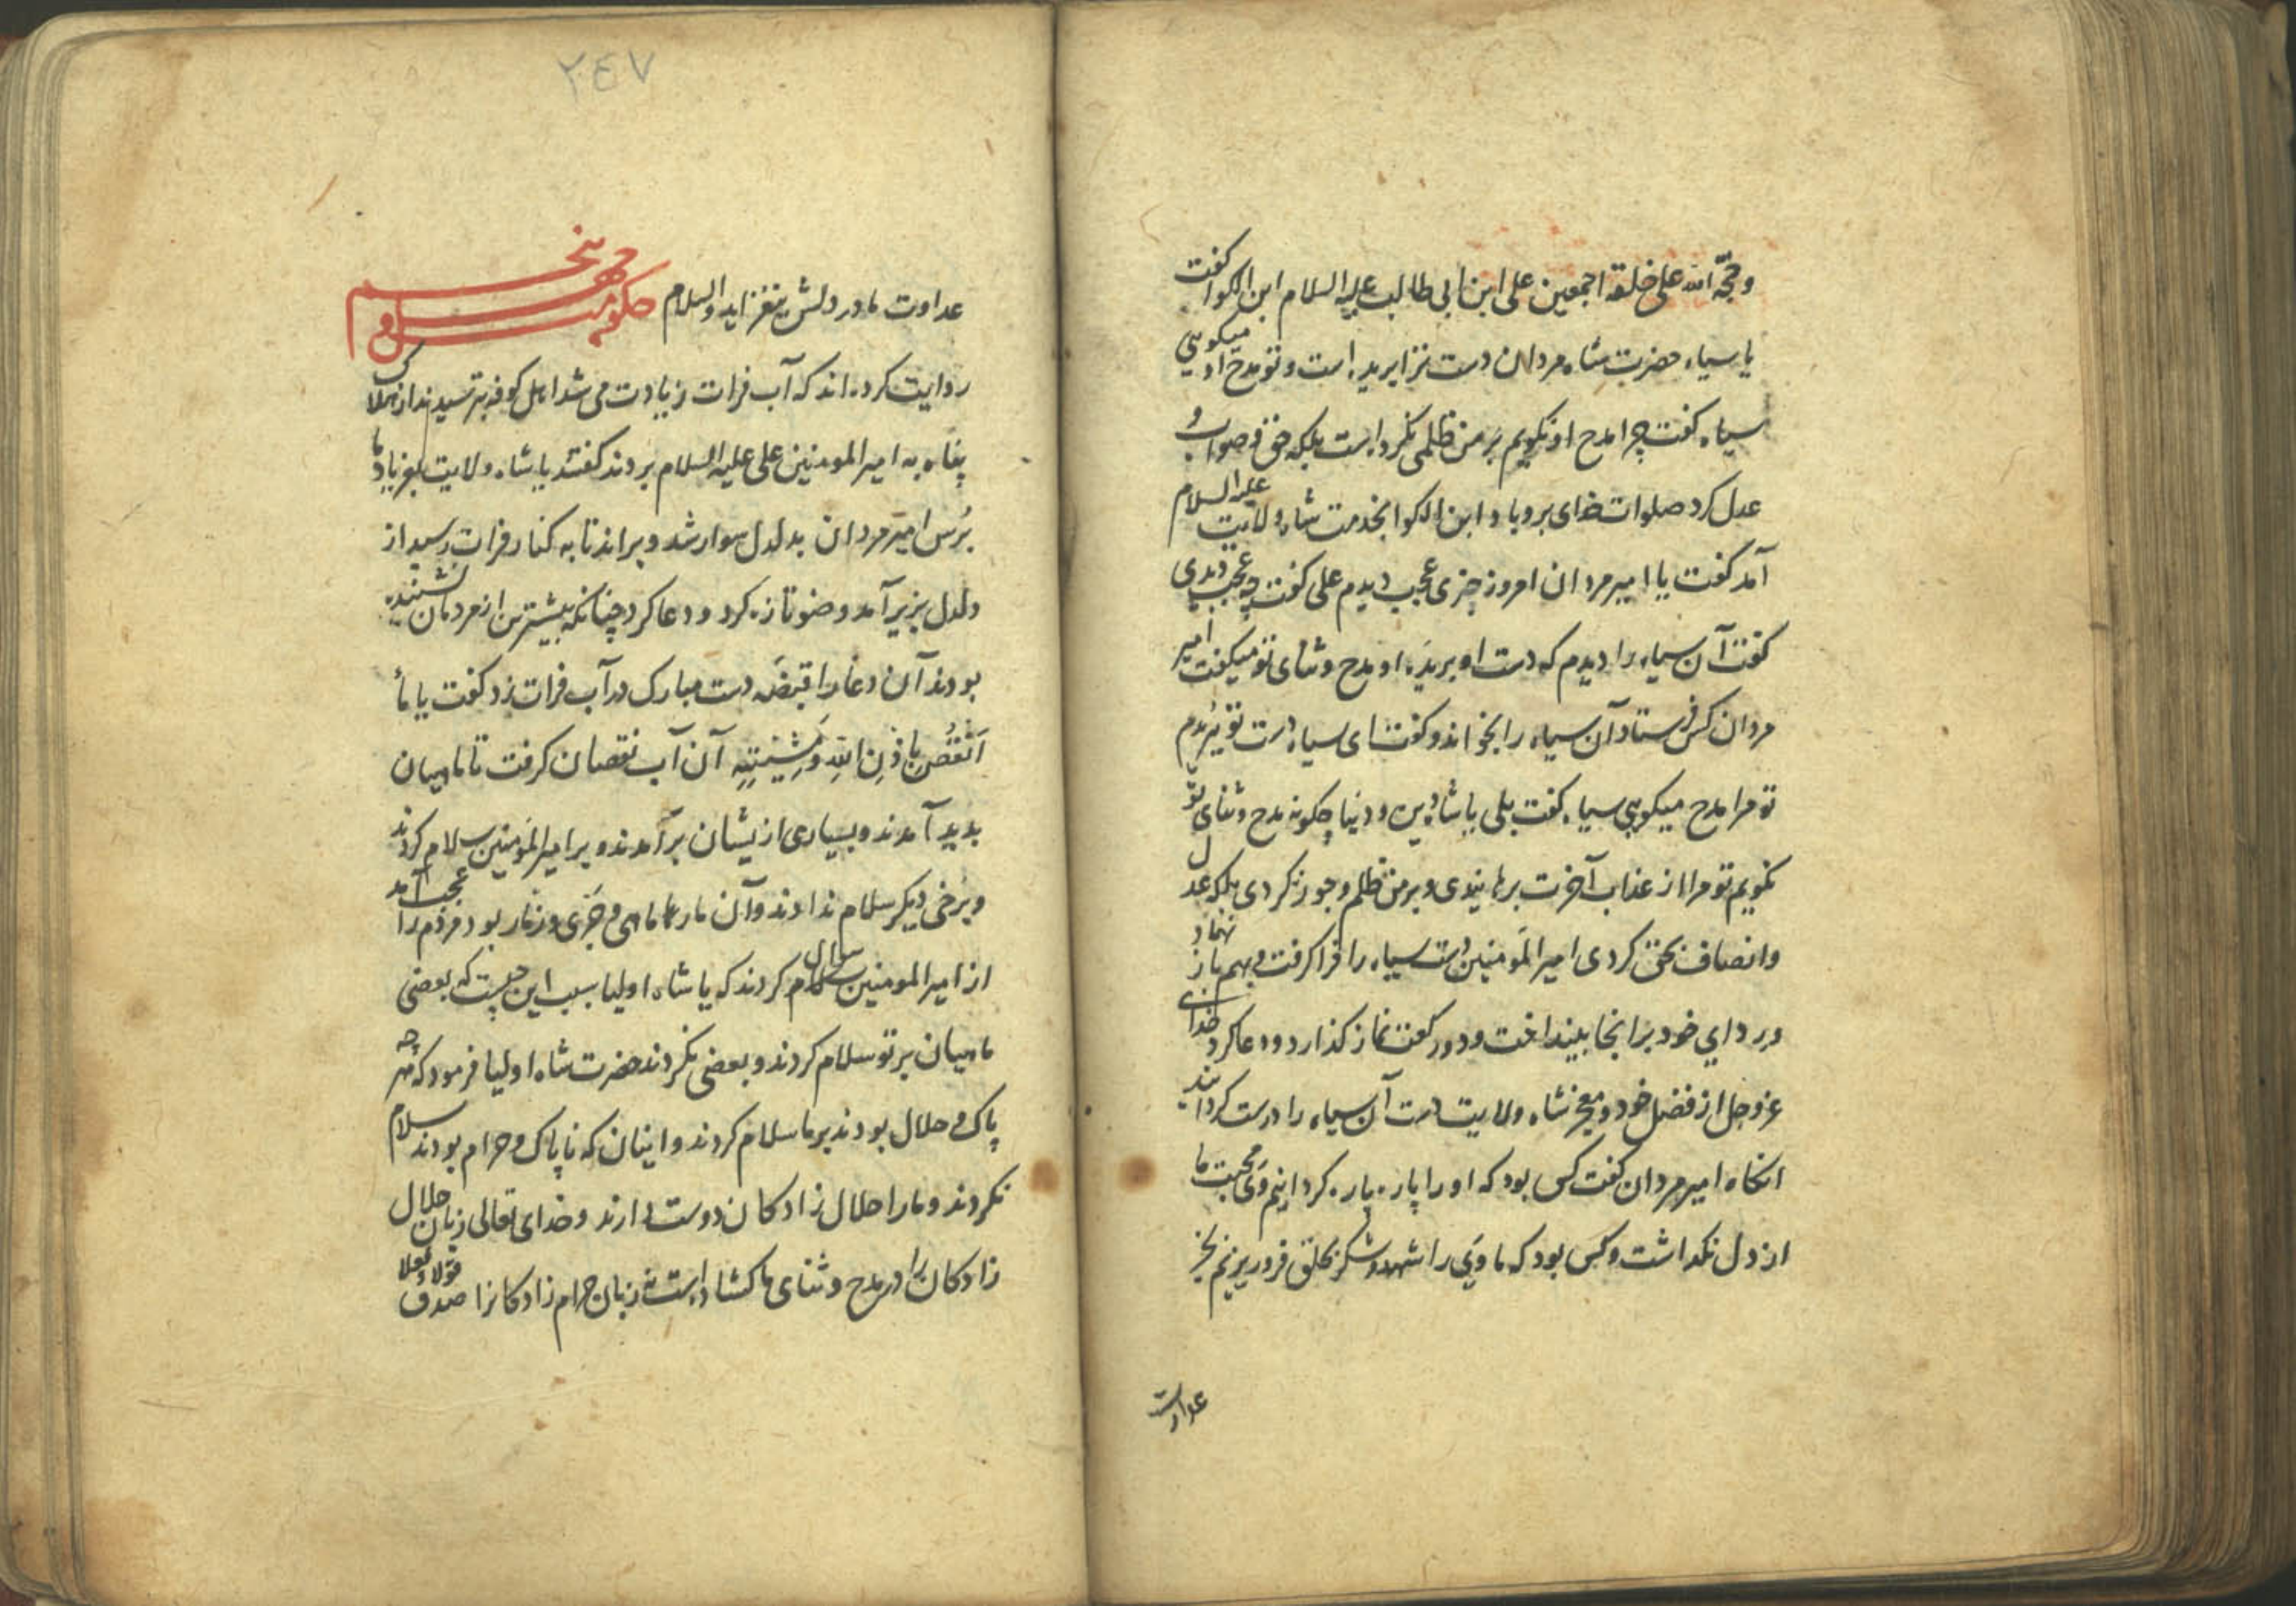 وحجّة الله علی خلقه اجمعین علی ابن ابی طالب علیه السلام ابن الکوا کفت
یا سیاه حضرت شاه مردان دست ترا بریده است و تو مدح او میکویی
سیاه کفت چرا مدح او نکویم بر من ظلمی نکرد است بلکه حق و صواب و
عدل کرد صلوات خدای برو باد ابن الکوا بخدمت شاه ولایت علیه السلام
آمد کفت یا امیر مردان امروز چیزی عجب دیدم علی کفت چه عجب دیدی
کفت آن سیاه را دیدم که دست او بریدهٔ او مدح و ثنای تو میکفت امیر
مردان کس فرستاد آن سیاه را بخواند و کفت ای سیاه دست تو بریدم
تو مرا مدح میکویی سیاه کفت بلی یا شاه دین و دنیا چکونه مدح و ثنای تو
نکویم تو مرا از عذاب آخرت برهانیدی و بر من ظلم و جور نکردی بلکه عدل
وانصاف بحق کردی امیر المؤمنین دست سیاه را فرا کرفت و بهم باز نهاد
و ردای خود برانجا بینداخت و دو رکعت نماز کذارد و دعا کرد خدای
عز وجل از فضل خود و معجز شاه ولایت دست آن سیاه را درست کردانید
انکاه امیر مردان کفت کس بود که او را پاره پاره کردانیم و محبت ما
از دل نکداشت وکس بود که ما وی را شهد و شکر بحلق فرو ریزیم بجز
عداوت
٢٤٧
عداوت ما در دلش نیفزاید والسلام حکومت چهل و پنجم
روایت کرده اند که آب فرات زیادت می شد اهل کوفه بترسیدند از هلاک
پناه به امیر المومنین علی علیه السلام بردند کفتند یا شاه ولایت بفریاد ما
برس امیر مردان بدلدل سوار شد و براند تا به کنار فرات رسید از
دلدل بزیر آمد وضو تازه کرد و دعا کرد چنانکه بیشترین از مردمان شنیده
بودند آن دعا را قبضهٔ دست مبارک در آب فرات زد کفت یا ماءُ
اَنْقُصْ بِاِذْنِ اللّهِ وَ مَشِیَّتِهِ آن آب نقصان کرفت تا ماهیان
بدید آمدند و بسیاری از یشان برآمدند و بر امیر المؤمنین سلام کردند
وبرخی دیکر سلام ندادند وآن مارماهی و جرّی و زمار بود مردم را عجب آمد
از امیر المومنین سوال کردند که یا شاه اولیا سبب این چیست که بعضی
ماهیان بر تو سلام کردند و بعضی نکردند حضرت شاه اولیا فرمود که هرچه
پاک و حلال بودند بر ما سلام کردند و اینان که ناپاک و حرام بودند سلام
نکردند و مارا حلال زادکان دوست دارند و خدای تعالی زبان حلال
زادکان را در مدح و ثنای ما کشاد است و زبان حرام زادکانرا صدق قولا و فعلا